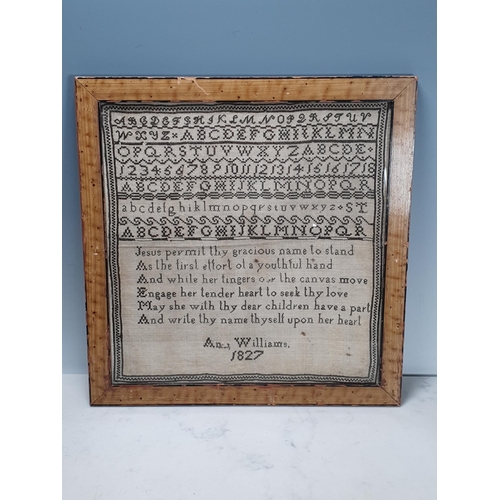 ABCDEFGHIJKLMNOPQRSTUV
WXYZ × ABCDEFGHIJKLMN
OPQRSTUVWXYZ ABCDE
123456789101112131415161718
ABCDEFGHIJKLMNOPQR
abcdefghiklmnopqrstuvwxyz ST
ABCDEFGHIJKLMNOPQR
Jesus permit thy gracious name to stand
As the first effort of a youthful hand
And while her fingers over the canvas move
Engage her tender heart to seek thy love
May she with thy dear children have a part
And write thy name thyself upon her heart
Williams.
1827